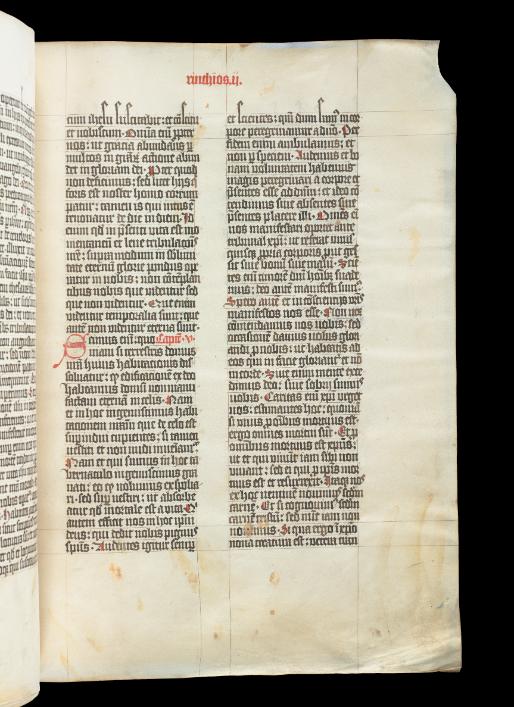 rinthios.ij.
cum ihesu suscitabit: et ꝯstituet
et nobiscum. Omnia enī propter
vos: ut gracia abundans ꝑ
multos in grāꝝ actione abun
det in gloriam dei. Propter quod
non deficimus: sed licet hijs q̄
foris est noster homo corrum
patur: tamen is qui intus ē
renouatur de die in diem. Id
enim qd̄ in p̄senti vita est mo
mentaneū et leue tribulacōis
nr̄e: supra modum in sublimi
tate eternū glorie pondus ope
ratur in nobis: non ꝯtemplan
tibus nobis que videntur sed
que non videntur. Que enim
videntur temporalia sunt: que
autē non videntur eterna sunt.
Scimus enī: quo Capitl̄ᵐ. v.
niam si terrestris domus
nr̄a huius habitacionis dis
soluatur: ꝙ edificacionē ex deo
habeamus domū non manu
factam eternā in celis. Nam
et in hoc ingemiscimus habi
tacionem nr̄am que de celo est
supindui cupientes: si tamen
vestiti et non nudi inueniam᾽.
Nam et qui sumus in hoc ta
bernaculo ingemiscimus gra
uati: eo ꝙ nolumus expolia
ri: sed sup̄ vestiri: ut absorbe
atur qd̄ mortale est a vita. Qui
autem efficit nos in hoc ip̄m
deus: qui dedit nobis pignus
spūs. Audentes igitur semper
et scientes: qm̄ dum sum᾽ in cor
pore peregrinamur a dn̄o. Per
fidem enim ambulamus: et
non ꝑ speciem. Audemus et bo
nam volūtatem habemus
magis peregrinari a corpore et
p̄sentes esse ad dn̄m: et ideo cō
tendimus siue absentes siue
p̄sentes placere illi. Omnes eī
nos manifestari oportet ante
tribunal xp̄i: ut referat vnus
quisqꝫ ꝓpria corporis prout ges
sit siue bonū siue malū. Scien
tes ergo timorē dn̄i hoīb᾽ suade
mus: deo autē manifesti sum᾽.
Spero autē et in cōscienciis vr̄is
manifestos nos esse. Non iteꝝ
cōmendamus nos vobis: sed
occasionē damus vobis glori
andi ꝓ nobis: ut habeatis ad
eos qui in facie gloriant᾽ et nō
in corde. Siue enim mente exce
dimus deo: siue sobrij sumus
vobis. Caritas enī xp̄i vrget
nos: estimantes hoc: quoniā
si vnus pro omnibus mortuus est:
ergo omnes mortui sūt. Et ꝓ
omnibus mortuus est xp̄us:
ut et qui viuūt iam sibi non
viuant: sed ei qui ꝓ ip̄is mor
tuus est et resurrexit. Itaqꝫ nos
ex hoc neminē nouimus scd̄m
carnē. Et si cognouim᾽ scd̄m
carnē xp̄m: sed nūc iam non
nouimus. Si qua ergo ī xp̄o
noua creatura est: vetera trans